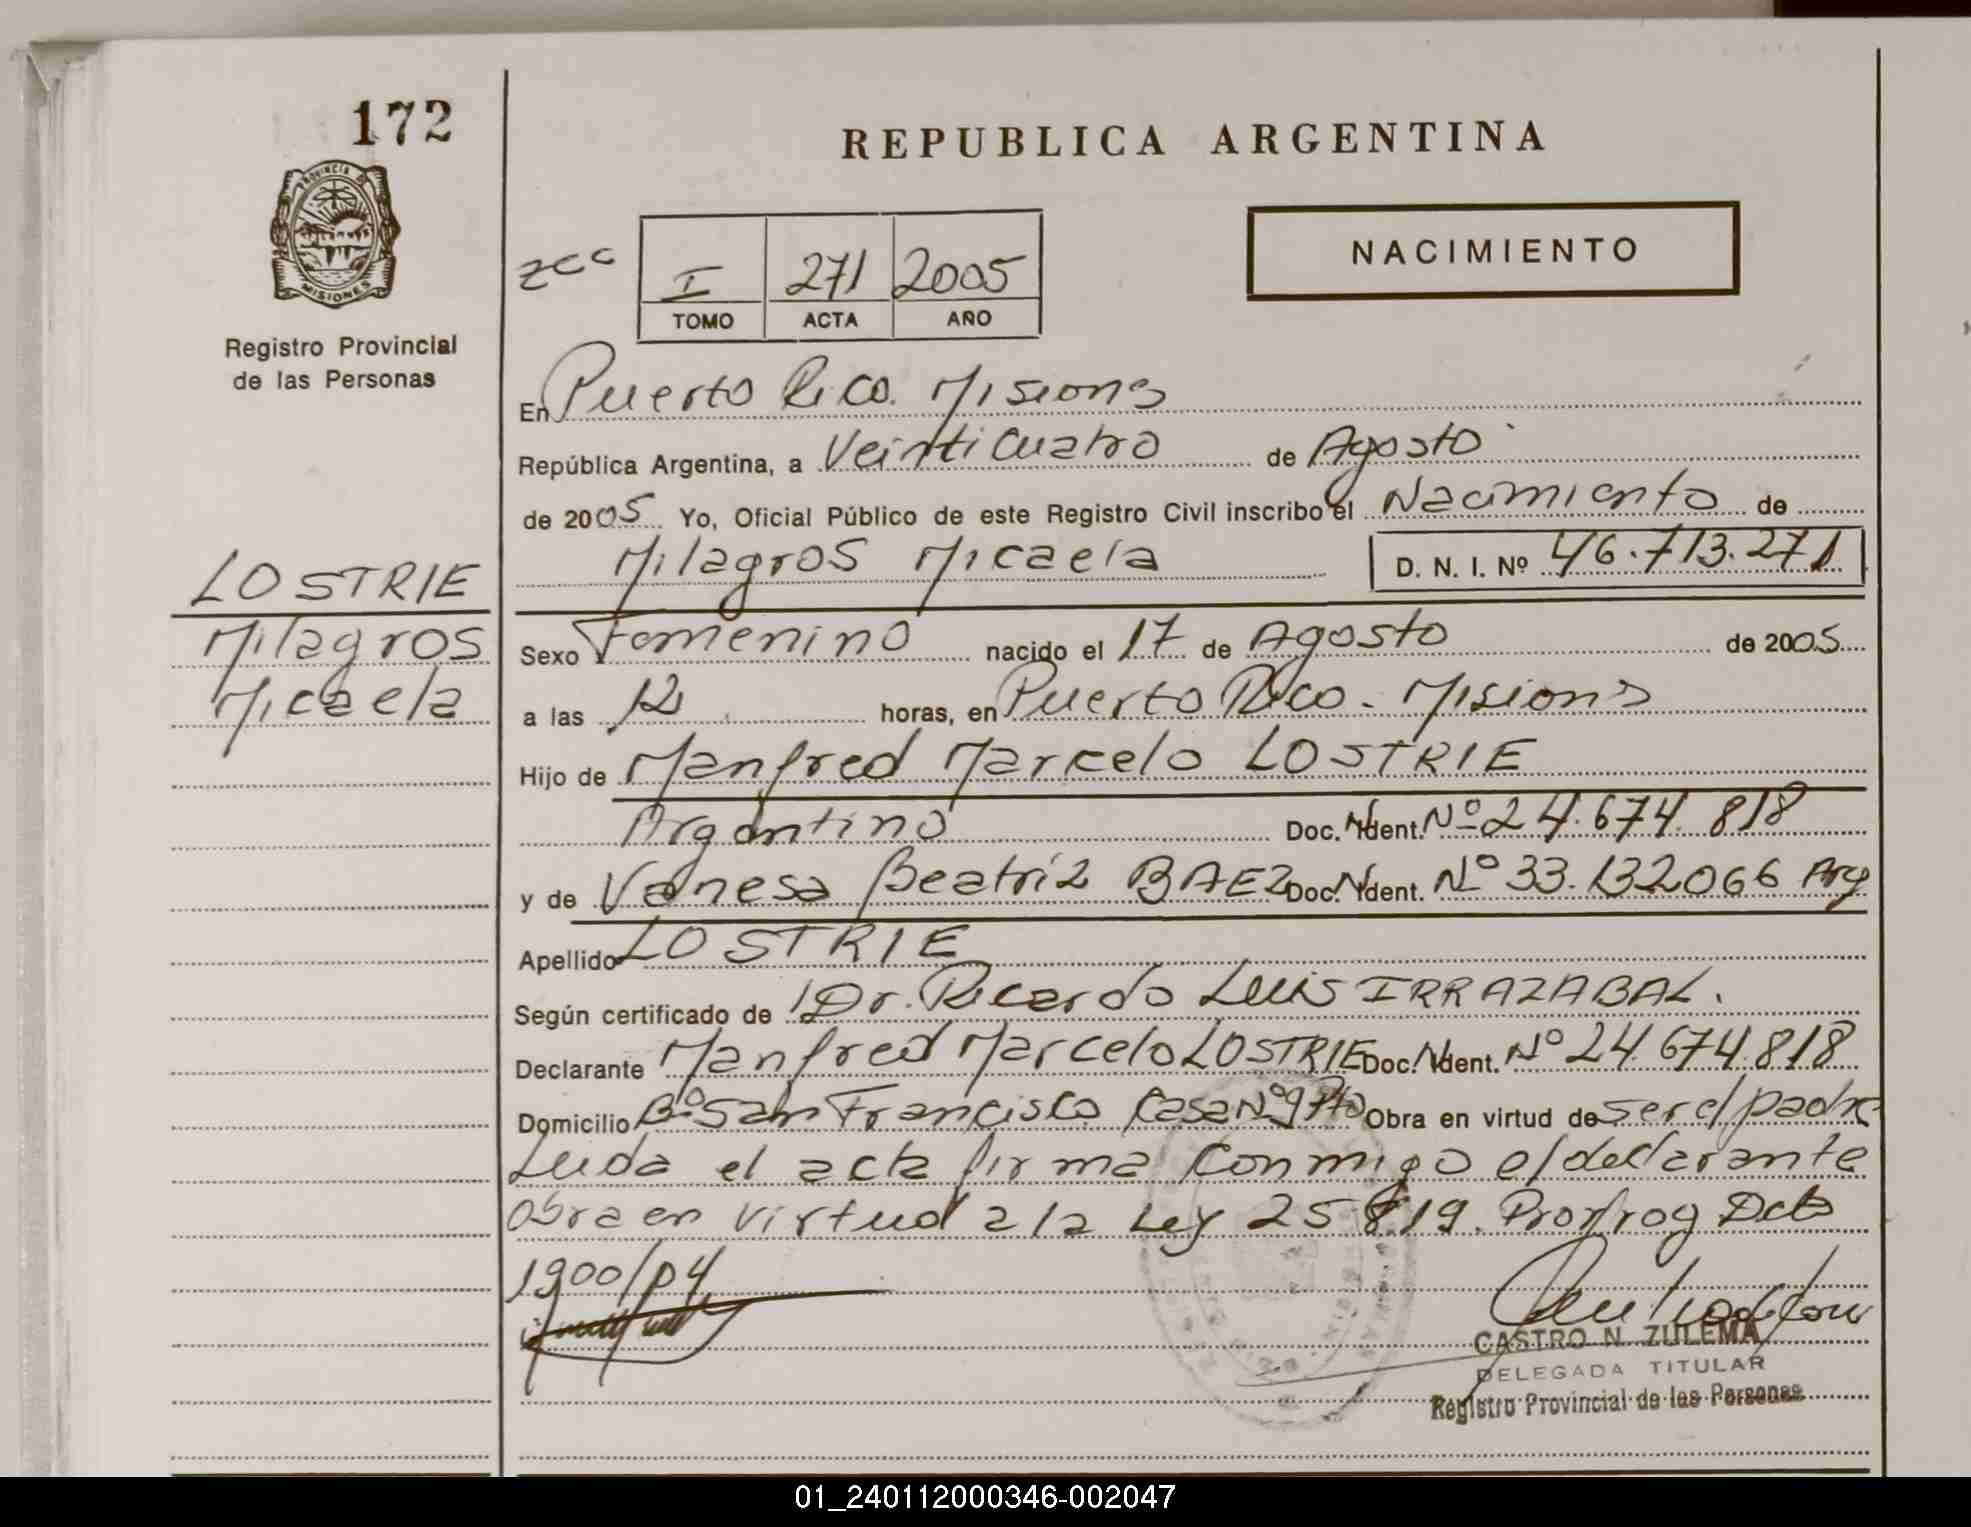 172
REPUBLICA ARGENTINA
PROVINCIA DE
MISIONES
Registro Provincial
de las Personas
NACIMIENTO
zcc
I 271 2005
TOMO ACTA AÑO
En Puerto Rico. Misions
República Argentina, a Veinticuatro de Agosto
de 2005 Yo, Oficial Público de este Registro Civil inscribo el Nacimiento de
Milagros Micaela D. N. I. Nº 46.713.271
LOSTRIE
Milagros
Micaela
Sexo Femenino nacido el 17 de Agosto de 2005
a las 12 horas, en Puerto Rico. Misions
Hijo de Manfred Marcelo LOSTRIE
Argentino Doc. Ident. Nº 24.674.818
y de Vanesa Beatríz BAEZ Doc. Ident. Nº 33.132066 Arg
Apellido LOSTRIE
Según certificado de Dr. Ricardo Luis IRRAZABAL.
Declarante Manfred Marcelo LOSTRIE Doc. Ident. Nº 24.674.818
Domicilio Bº San Francisco Casa Nº 9 Pto Obra en virtud de ser el padre
Leida el acta firma conmigo el declarante
Obra en virtud a la Ley 25.819. Dcto
1900/04
CASTRO N. ZULEMA
DELEGADA TITULAR
Registro Provincial de las Personas
01_240112000346-002047